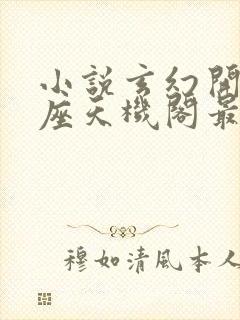 小說玄幻開
座天機閣最
穆如清風本人